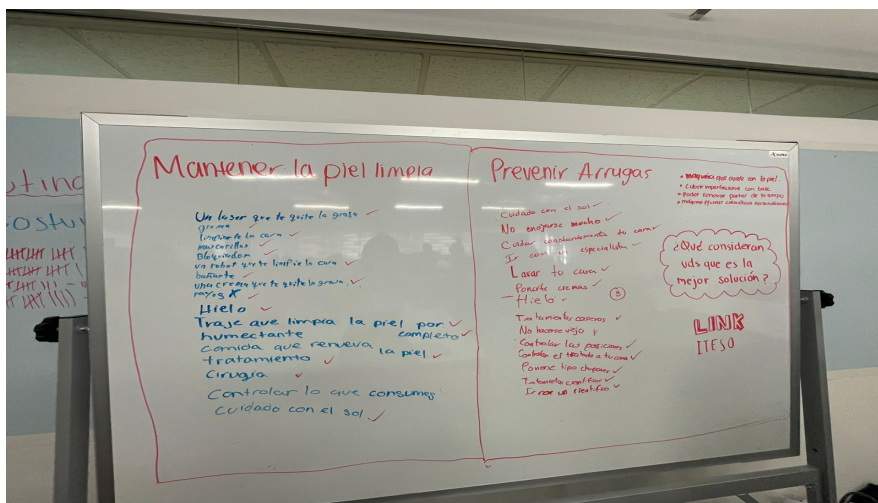 Mantener la piel limpia
Un laser que te quite la grasa
crema
limpiarte la cara
mascarillas
Bloqueador
un robot que te limpie la cara
bañarte
una crema que te quite la grasa
rayos X
Hielo
Traje que limpia la piel por
humectante completo
comida que renueva la piel
tratamiento
Cirugia
Controlar lo que consumes
Cuidado con el sol
Prevenir Arrugas
Cuidado con el sol
No enojarse mucho
Cuidar constantemente tu cara
Ir con el especialista
Lavar tu cara
Ponerte cremas
Hielo
3
Tratamientos caseros
No hacerse vejo
Controlar las
Controlar el a tu cara
Ponerse tipo
Ir con un cientifico
que ayude con la piel
Cubrir imperfecciones con
Poder remover partes de tu cuerpo
¿Qué consideran
uds que es la
mejor solución?
LINK
ITESO